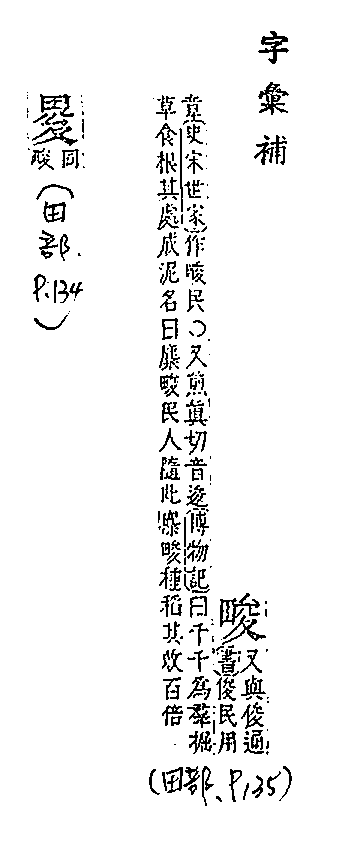 字彙補
畯
又與俊通
書俊民用
章史宋世家作畯民○又煎眞切音逡博物記曰千千為羣掘
草食根其處成泥名曰麋畯民人隨此麋畯種稻其收百倍
(田部、P.135)
同畯
(田部.P.134)